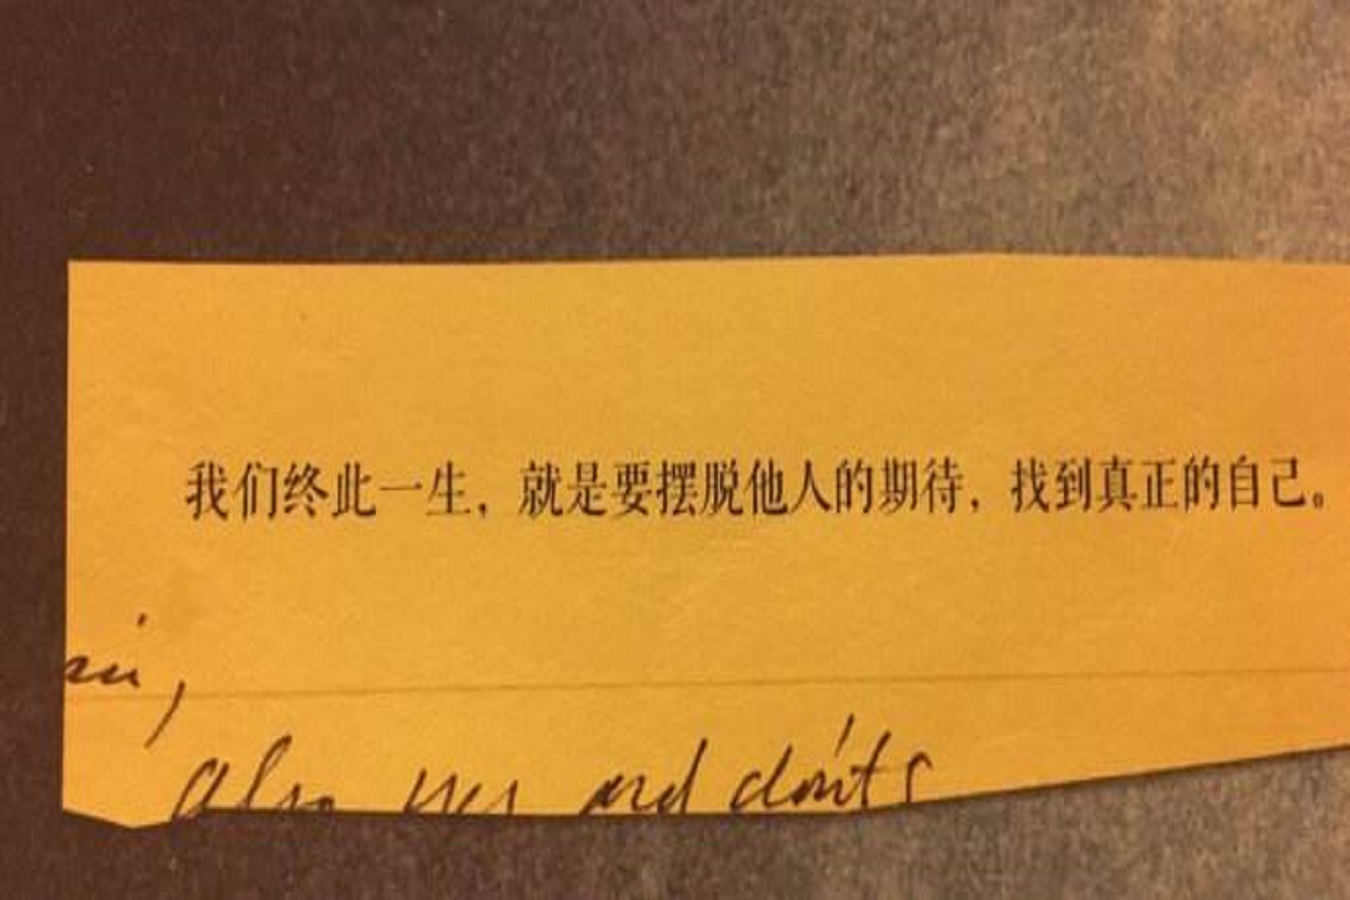 我们终此一生，就是要摆脱他人的期待，找到真正的自己。
also yes and don't